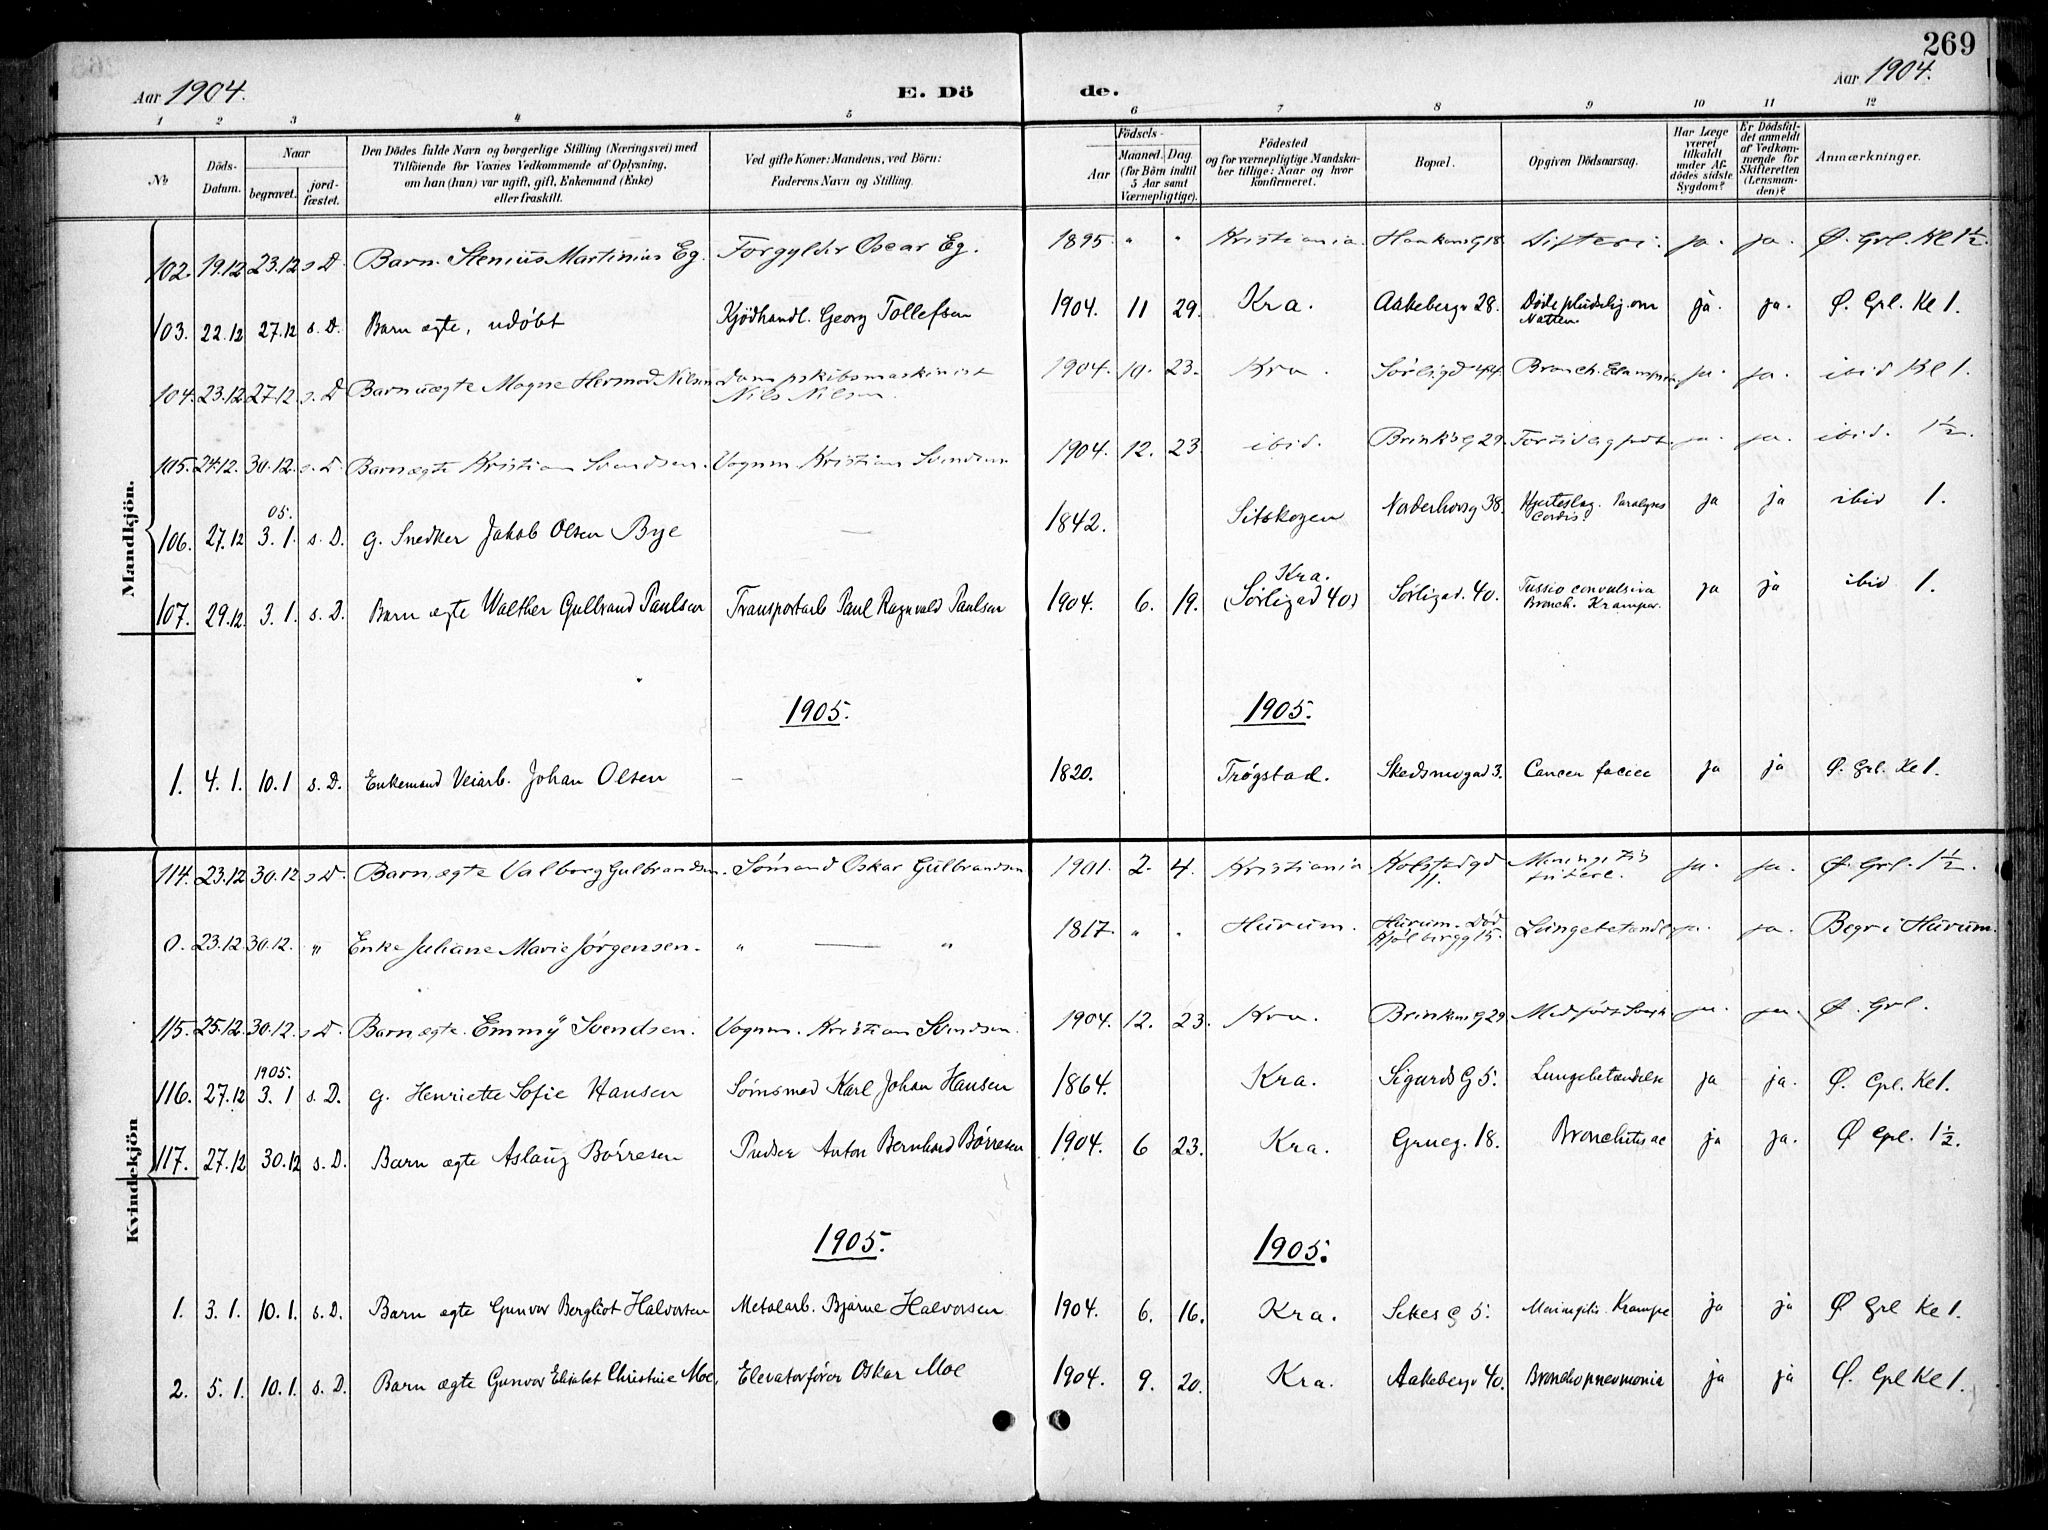 269
Aar 1904.
E. Dö
de.
Aar 1904.
1 2 3 4 5 6 7 8 9 10 11 12
No.
Döds-Datum.
Naar
begravet.
jord-fæstet.
Den Dödes fulde Navn og borgerlige Stilling (Næringsvei) med
Tilföiende for Voxnes Vedkommende af Oplysning,
om han (hun) var ugift, gift, Enkemand (Enke)
eller fraskilt.
Ved gifte Koner: Mandens, ved Börn:
Faderens Navn og Stilling.
Födsels-
Aar
Maaned. Dag
(for Börn indtil
5 Aar samt
Værnepligtige).
Födested
og for værnepligtige Mandska-
ber tillige: Naar og hvor
konfirmeret.
Bopæl.
Opgiven Dödsaarsag.
Har Læge
været
tilkaldt
under Af-
dödes sidste
Sygdom?
Er Dödsfal-
det anmeldt
af Vedkom-
mende for
Skifteretten
(Lensman-
den)?
Anmærkninger.
Mandkjön.
102. 19.12 23.12 s. D. Barn Stenius Martinius Eg. Forgylder Oscar Eg. 1895 " " Kristiania. Haakonsg 18. Difteri. ja. ja. Ø. Grl. Kl 1½.
103. 22.12 27.12 s. D. Barn ægte, udøbt Kjödhandl. Georg Tollefsen 1904. 11 29. Kra. Aakebergv 28. Døde pludselig om Natten. ja. ja. Ø. Grl. Kl 1.
104. 23.12 27.12 s. D Barn uægte Magne Hermod Nilsen Dampskibsmaskinist Nils Nilsen 1904. 10. 23. Kra. Sørligd 44. Bronch. Eclampsia ja. ja. ibid Kl 1.
105. 24.12. 30.12. s. D. Barn ægte Kristian Svendsen. Vognm. Kristian Svendsen 1904. 12. 23 ibid. Brinks G 29. ja. ja. ibid. 1½.
106. 27.12 05. 3. 1. s. D. g. Snedker Jakob Olsen Bye — 1842. Sitskogen Norderhovsg 38. Hjerteslag. Paralyses Cordis. ja ja ibid 1.
107. 29.12. 3. 1. s. D. Barn ægte Walther Gulbrand Paulsen Transportarb Paul Ragnvald Paulsen 1904. 6. 19. Kra. (Sørligad 40) Sørligad. 40. Tussio convulsiva Bronch. Kramper. ja ja ibid 1.
1905. 1905.
1. 4. 1. 10. 1 s. D. Enkemand Veiarb. Johan Olsen — 1820. Trøgstad. Skedsmogad 3. Cancer faciei ja ja Ø. Grl. Kl 1.
Kvindekjön
114. 23.12 30.12 s D. Barn ægte Valborg Gulbrandsen. Sømand Oskar Gulbrandsen 1901. 2. 4. Kristiania Kolstadgd 11. Meningitis tuberc. ja. ja. Ø. Grl. 1½.
0. 23.12. 30.12. " Enke Juliane Marie Jørgensen. " — " 1817. " " Hurum. Hurum. Lungebetændelse ja. ja. Begr i Hurum.
115. 25.12. 30.12. s D. Barn ægte. Emmÿ Svendsen. Vognm. Kristian Svendsen. 1904. 12. 23. Kra. Brinkens G 29. Medfödt Svagh ja. ja. Ø. Grl.
116. 27.12 1905. 3. 1 s. D. g. Henriette Sofie Hansen Sømsmed Karl Johan Hansen 1864. Kra. Sigurds G 5. Lungebetændelse ja ja. Ø. Grl. Kl 1.
117. 27.12 30.12 s. D. Barn ægte Aslaug Børresen Pudser Anton Bernhard Børresen 1904. 6 23. Kra. Grueg. 18. Bronchitis ac ja ja. Ø Grl. 1½.
1905. 1905.
1. 3. 1. 10. 1. s. D. Barn ægte Gunvor Bergliot Halvorsen Metalarb. Bjarne Halvorsen 1904. 6. 16. Kra. G 5. Meningitis. Krampe ja ja Ø Grl Kl 1.
2. 5. 1. 10. 1. s. D. Barn ægte Gunvor Elisabet Christine Moe. Elevatorfører Oskar Moe 1904. 9. 20. Kra. Aakebergv 40. Bronchopneumonia ja ja Ø. Grl Kl 1.